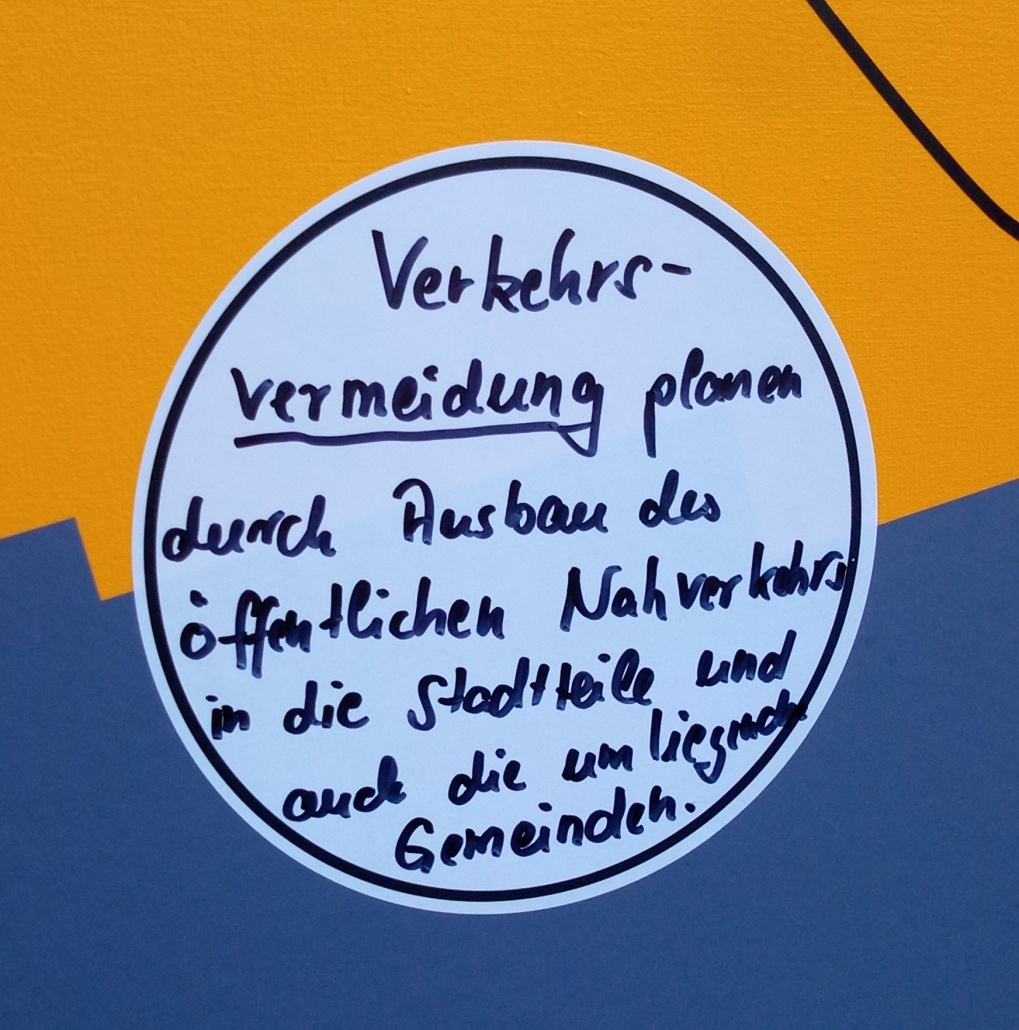 Verkehrs-
vermeidung planen
durch Ausbau des
öffentlichen Nahverkehrs
in die Stadtteile und
auch die umliegenden
Gemeinden.